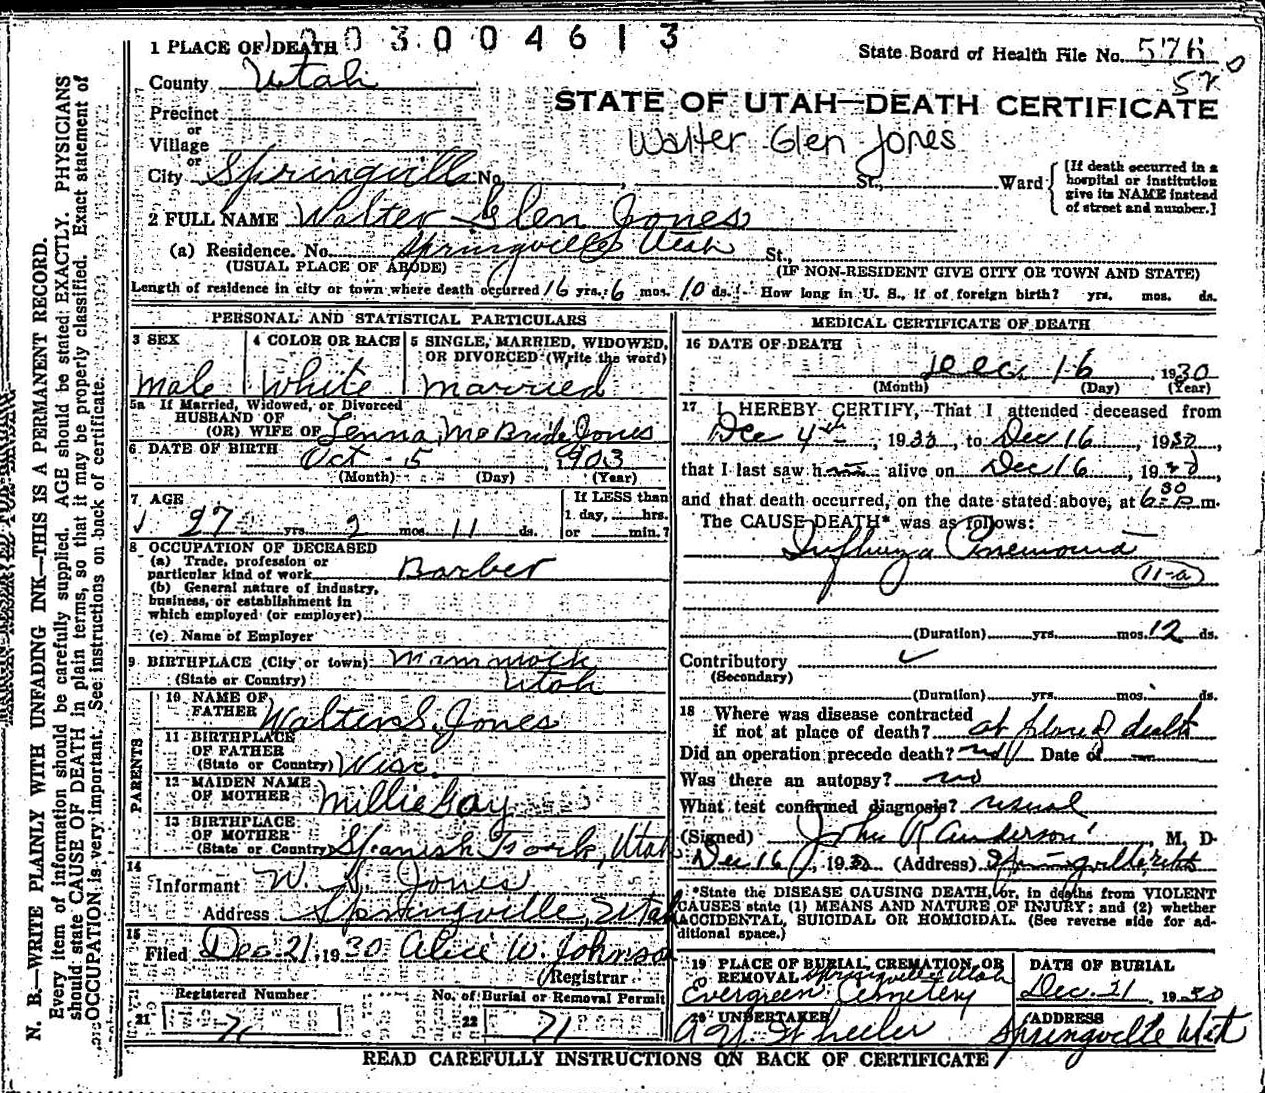 003004613
1 PLACE OF DEATH
State Board of Health File No. 576
570
County Utah
STATE OF UTAH—DEATH CERTIFICATE
Precinct
or
Village
Walter Glen Jones
or
City Springville No. St., Ward
[If death occurred in a
hospital or institution
give its NAME instead
of street and number.]
2 FULL NAME Walter Glen Jones
(a) Residence. No. Springville Utah St.,
(USUAL PLACE OF ABODE) (IF NON-RESIDENT GIVE CITY OR TOWN AND STATE)
Length of residence in city or town where death occurred 16 yrs. 6 mos. 10 ds. How long in U. S., if of foreign birth? yrs. mos. ds.
PERSONAL AND STATISTICAL PARTICULARS
3 SEX
male
4 COLOR OR RACE
White
5 SINGLE, MARRIED, WIDOWED,
OR DIVORCED (Write the word)
married
5a If Married, Widowed, or Divorced
HUSBAND OF
(OR) WIFE OF Lenna McBride Jones
6 DATE OF BIRTH
Oct 5 1903
(Month) (Day) (Year)
7 AGE
27 yrs. 2 mos. 11 ds.
If LESS than
1 day, hrs.
or min.?
8 OCCUPATION OF DECEASED
(a) Trade, profession or
particular kind of work Barber
(b) General nature of industry,
business, or establishment in
which employed (or employer)
(c) Name of Employer
9 BIRTHPLACE (City or town) Mammoth
(State or Country) Utah
PARENTS
10 NAME OF
FATHER Walter S. Jones
11 BIRTHPLACE
OF FATHER
(State or Country) Wisc.
12 MAIDEN NAME
OF MOTHER Millie Gay
13 BIRTHPLACE
OF MOTHER
(State or Country) Spanish Fork, Utah
14
Informant W. S. Jones
Address Springville, Utah
15
Filed Dec. 21, 1930 Alice W. Johnson
Registrar
Registered Number
21 71
No. of Burial or Removal Permit
22 71
MEDICAL CERTIFICATE OF DEATH
16 DATE OF DEATH
Dec. 16 1930
(Month) (Day) (Year)
17 I HEREBY CERTIFY, That I attended deceased from
Dec 4th, 1930, to Dec 16, 1930,
that I last saw him alive on Dec 16, 1930
and that death occurred, on the date stated above, at 6:30 P. m.
The CAUSE DEATH* was as follows:
Influenza Pneumonia
11-a
(Duration) yrs. mos. 12 ds.
Contributory
(Secondary)
(Duration) yrs. mos. ds.
18 Where was disease contracted
if not at place of death? at place of death
Did an operation precede death? no Date of
Was there an autopsy? no
What test confirmed diagnosis? usual
(Signed) John R Anderson, M. D.
Dec 16, 1930 (Address) Springville, Utah
*State the DISEASE CAUSING DEATH, or, in deaths from VIOLENT
CAUSES state (1) MEANS AND NATURE OF INJURY; and (2) whether
ACCIDENTAL, SUICIDAL OR HOMICIDAL. (See reverse side for ad-
ditional space.)
19 PLACE OF BURIAL, CREMATION, OR
REMOVAL Springville Utah
Evergreen Cemetery
DATE OF BURIAL
Dec. 21 1930
20 UNDERTAKER
A. Y. Wheeler
ADDRESS
Springville Utah
READ CAREFULLY INSTRUCTIONS ON BACK OF CERTIFICATE
N. B.—WRITE PLAINLY WITH UNFADING INK—THIS IS A PERMANENT RECORD.
Every item of information should be carefully supplied. AGE should be stated EXACTLY. PHYSICIANS
should state CAUSE OF DEATH in plain terms, so that it may be properly classified. Exact statement of
OCCUPATION is very important. See instructions on back of certificate.